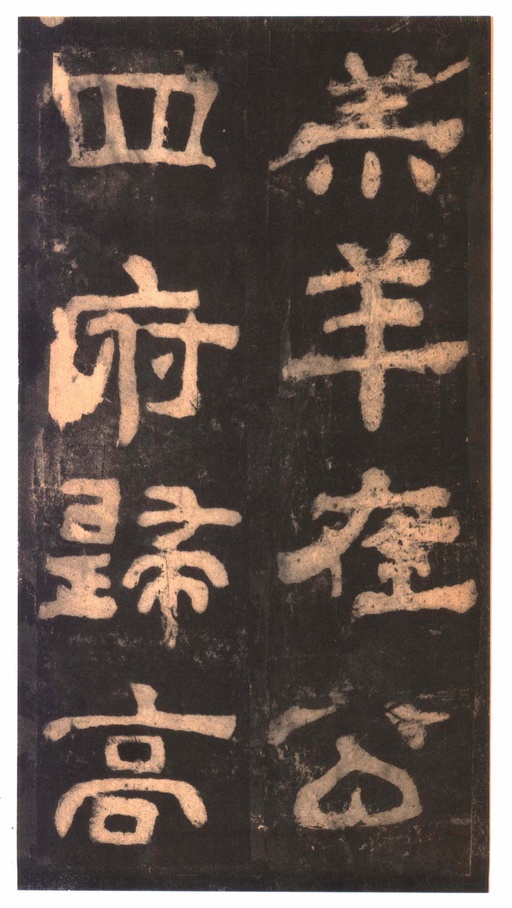 羔羊在公
四府歸高